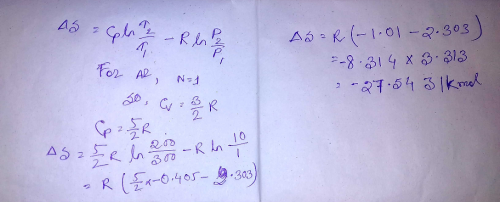 ΔS = Cp ln T2/T1 - R ln P2/P1
For Ar, N=1
So, Cv = 3/2 R
Cp = 5/2 R
ΔS = 5/2 R ln 200/300 - R ln 10/1
= R (5/2 x -0.405 - 2.303)
ΔS = R (-1.01 - 2.303)
= -8.314 x 3.313
= -27.54 J/Kmol